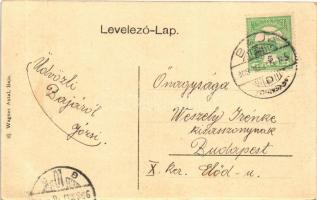 Levelező-Lap.
Üdvözli
Bajáról
Őnagysága
Weszely Irénke
kisasszonynak
Budapest
X. ker. Előd-u.